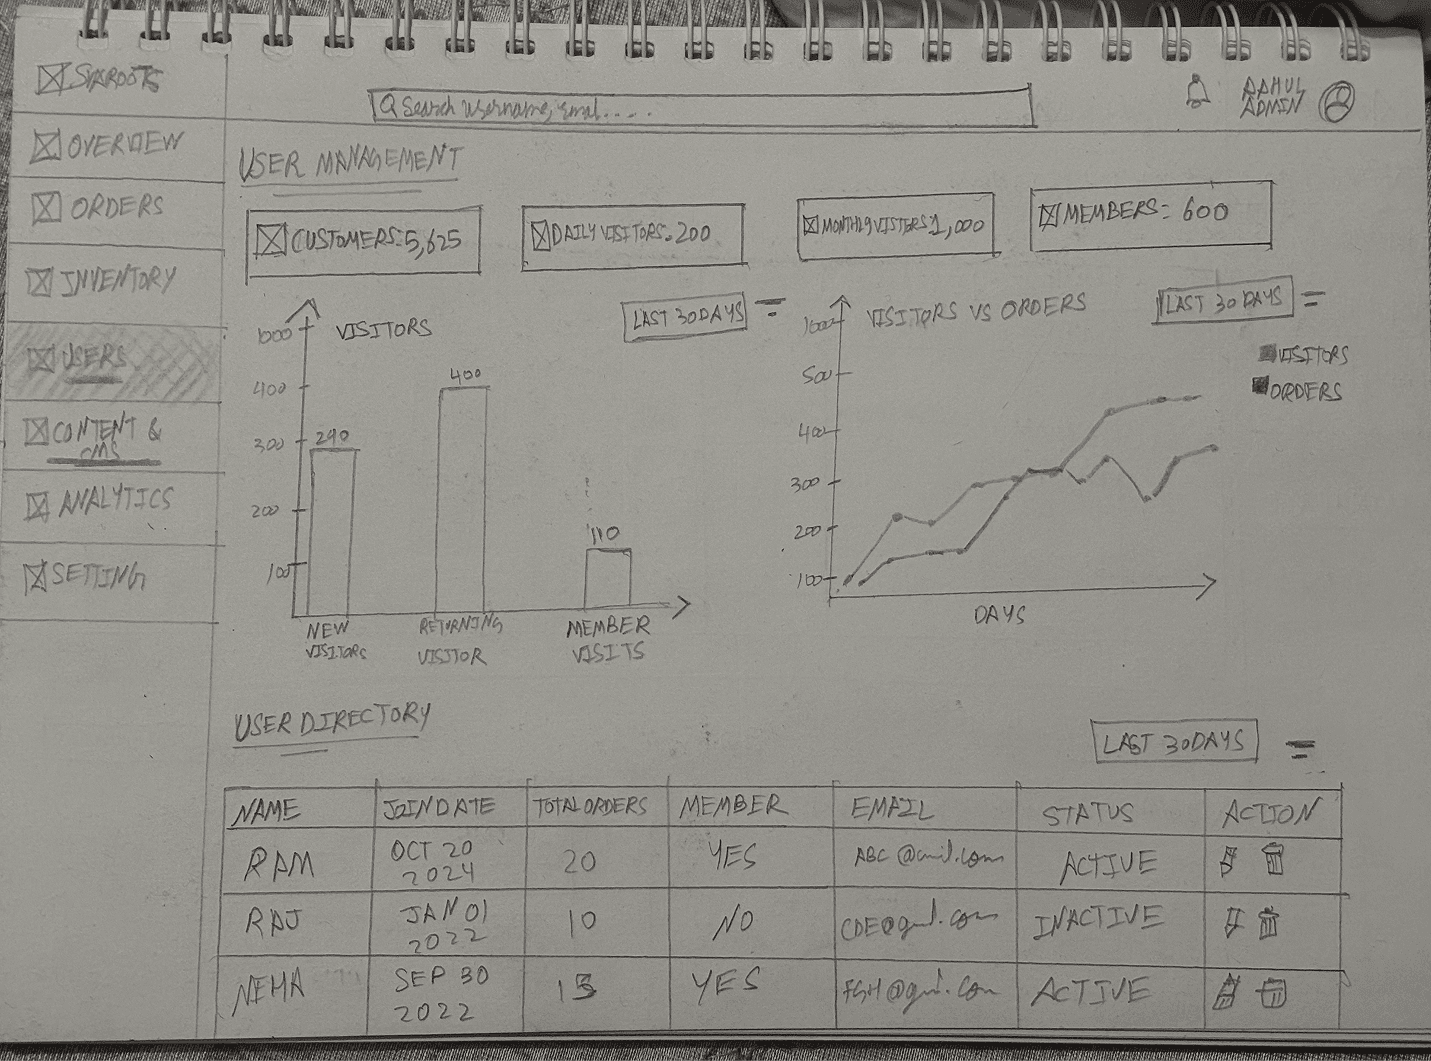 SVAROOTS
Search username, email.....
RAHUL
ADMIN
OVERVIEW
ORDERS
INVENTORY
USERS
CONTENT &
CMS
ANALYTICS
SETTING
USER MANAGEMENT
CUSTOMERS: 5,625
DAILY VISITORS: 200
MONTHLY VISTERS 1,000
MEMBERS: 600
VISITORS
LAST 30 DAYS
1000
400
300
200
100
290
400
110
NEW
VISITORS
RETURNING
VISITOR
MEMBER
VISITS
VISITORS VS ORDERS
LAST 30 DAYS
VISITORS
ORDERS
1000
500
400
300
200
100
DAYS
USER DIRECTORY
LAST 30 DAYS
NAME JOIN DATE TOTAL ORDERS MEMBER EMAIL STATUS ACTION
RAM OCT 20 2024 20 YES ABC ACTIVE
RAJ JAN 01 2022 10 NO INACTIVE
NEHA SEP 30 2022 YES ACTIVE